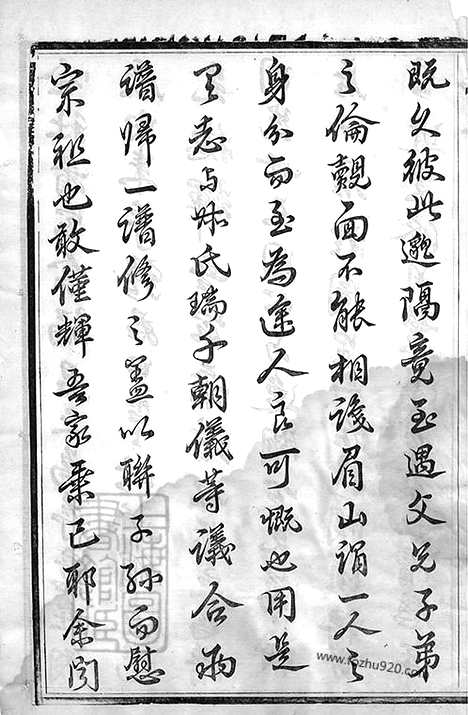 既久彼此邈隔竟至遇父兄子弟
之倫觌面不能相識眉山謂一人之
身分而至為途人良可慨也用是
矢志与 氏瑞千朝儀等議合兩
譜歸一譜修之蓋以聯子孫而慰
宗祖也敢僅輝吾家乘已耶余閱
www.fozhu920.com